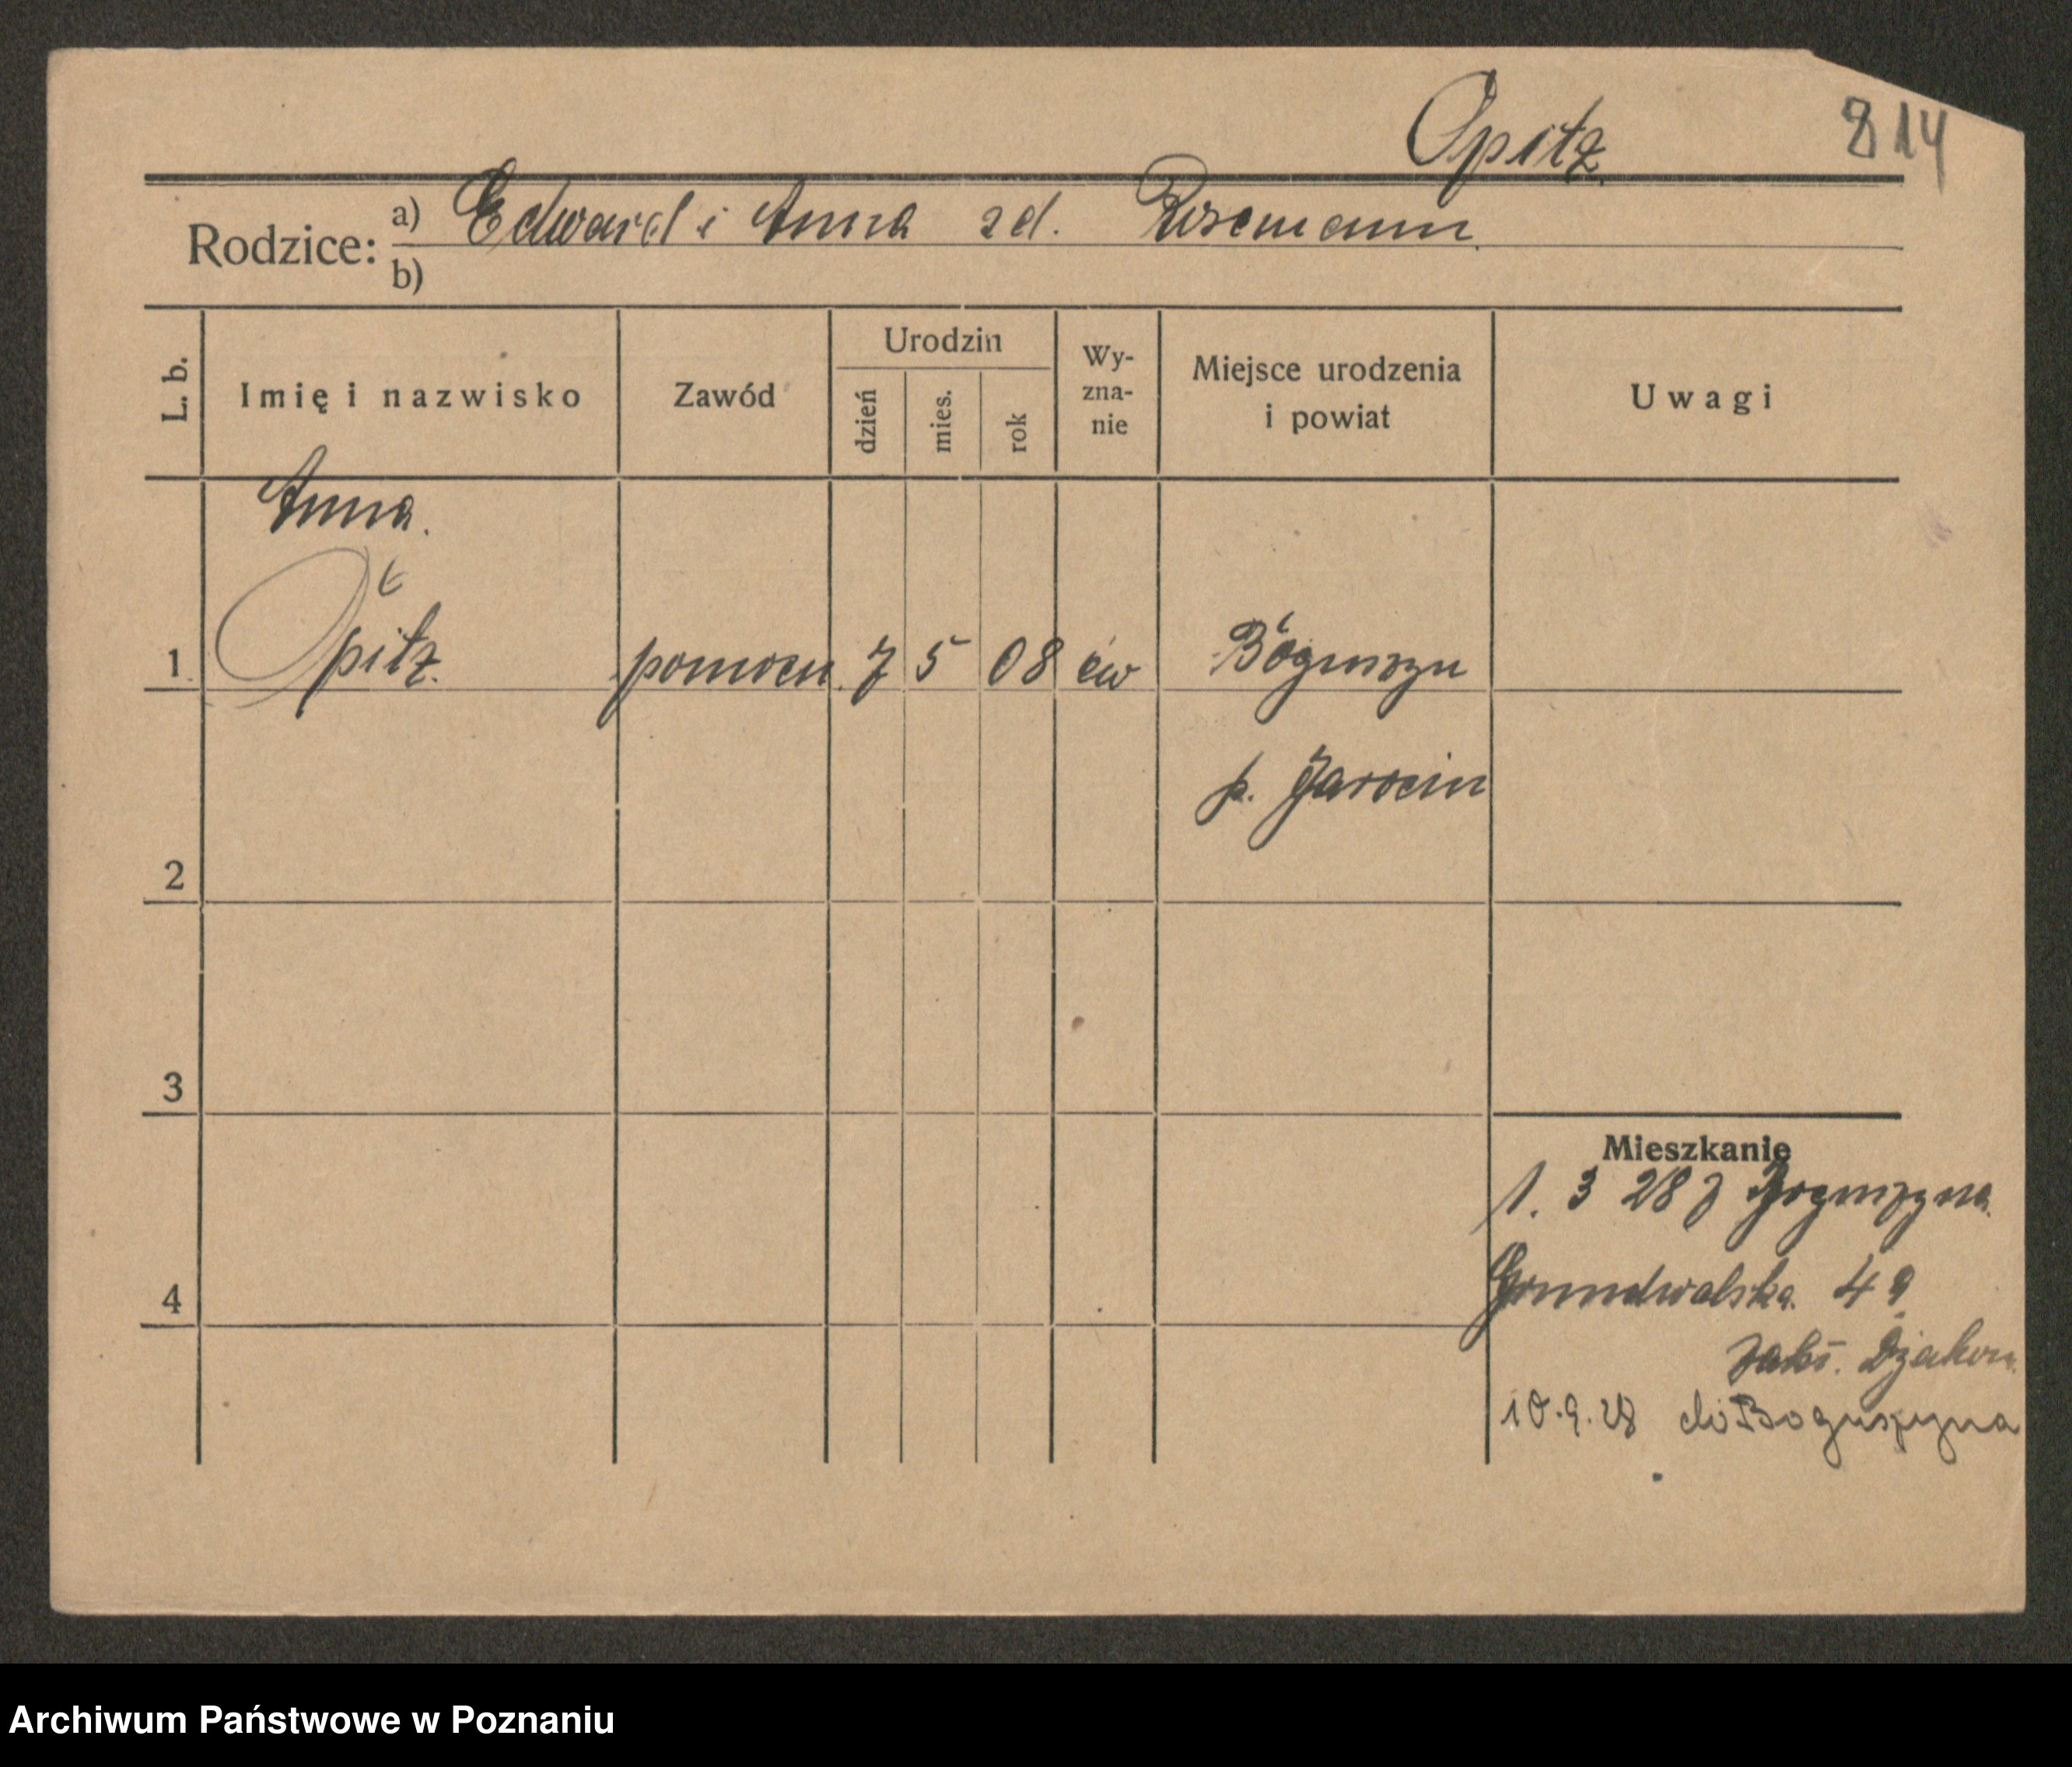 Opitz
814
Rodzice: a) Edward i Anna zd. Rosemann
b)
L. b.
Imię i nazwisko
Zawód
Urodzin
dzień
mies.
rok
Wy-
zna-
nie
Miejsce urodzenia
i powiat
Uwagi
Anna.
1 Opitz. pomocn. 7 5 08 ew Boguszyn
p. Jarocin
2
3
4
Mieszkanie
1. 3 28 z Boguszyna
Grundwalska 49
Zakł. Djakon.
10.9.28 do Boguszyna
Archiwum Państwowe w Poznaniu